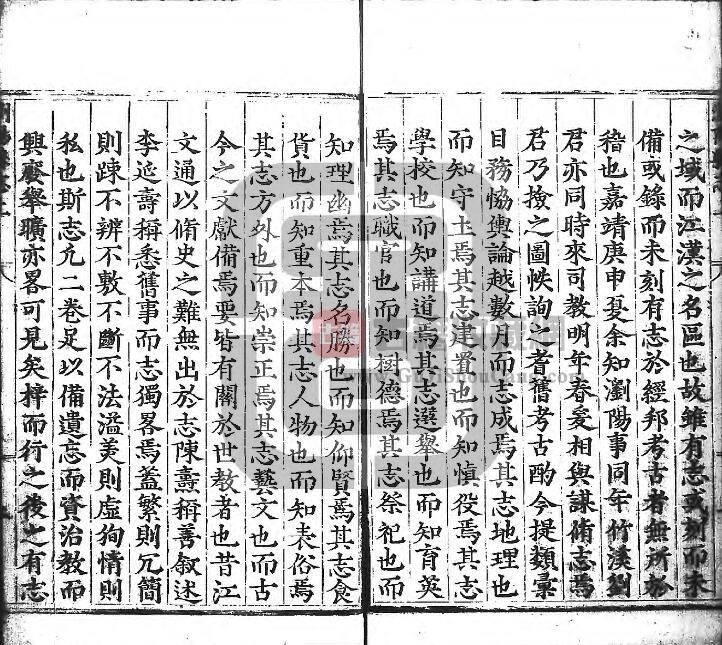 之域而江漢之名區也故雖有志或刻而未
備或錄而未刻有志於經邦考古者無所於
稽也嘉靖庚申夏余知瀏陽事同年竹溪劉
君亦同時來司教明年春爰相與謀脩志焉
君乃撿之圖帙詢之耆舊考古酌今提類彙
目務恊輿論越數月而志成焉其志地理也
而知守土焉其志建置也而知慎役焉其志
學校也而知講道焉其志選舉也而知育英
焉其志職官也而知樹德焉其志祭祀也而
知理幽焉其志名勝也而知仰賢焉其志食
貨也而知重本焉其志人物也而知表俗焉
其志方外也而知崇正焉其志藝文也而古
今之文獻備焉要皆有關於世教者也昔江
文通以脩史之難無出於志陳壽稱善叙述
李延壽稱悉舊事而志獨畧焉葢繁則冗簡
則踈不辨不敷不斷不法溢美則虛狥情則
私也斯志凢二卷足以備遺忘而資治教而
興廢舉曠亦畧可見矣梓而行之後之有志